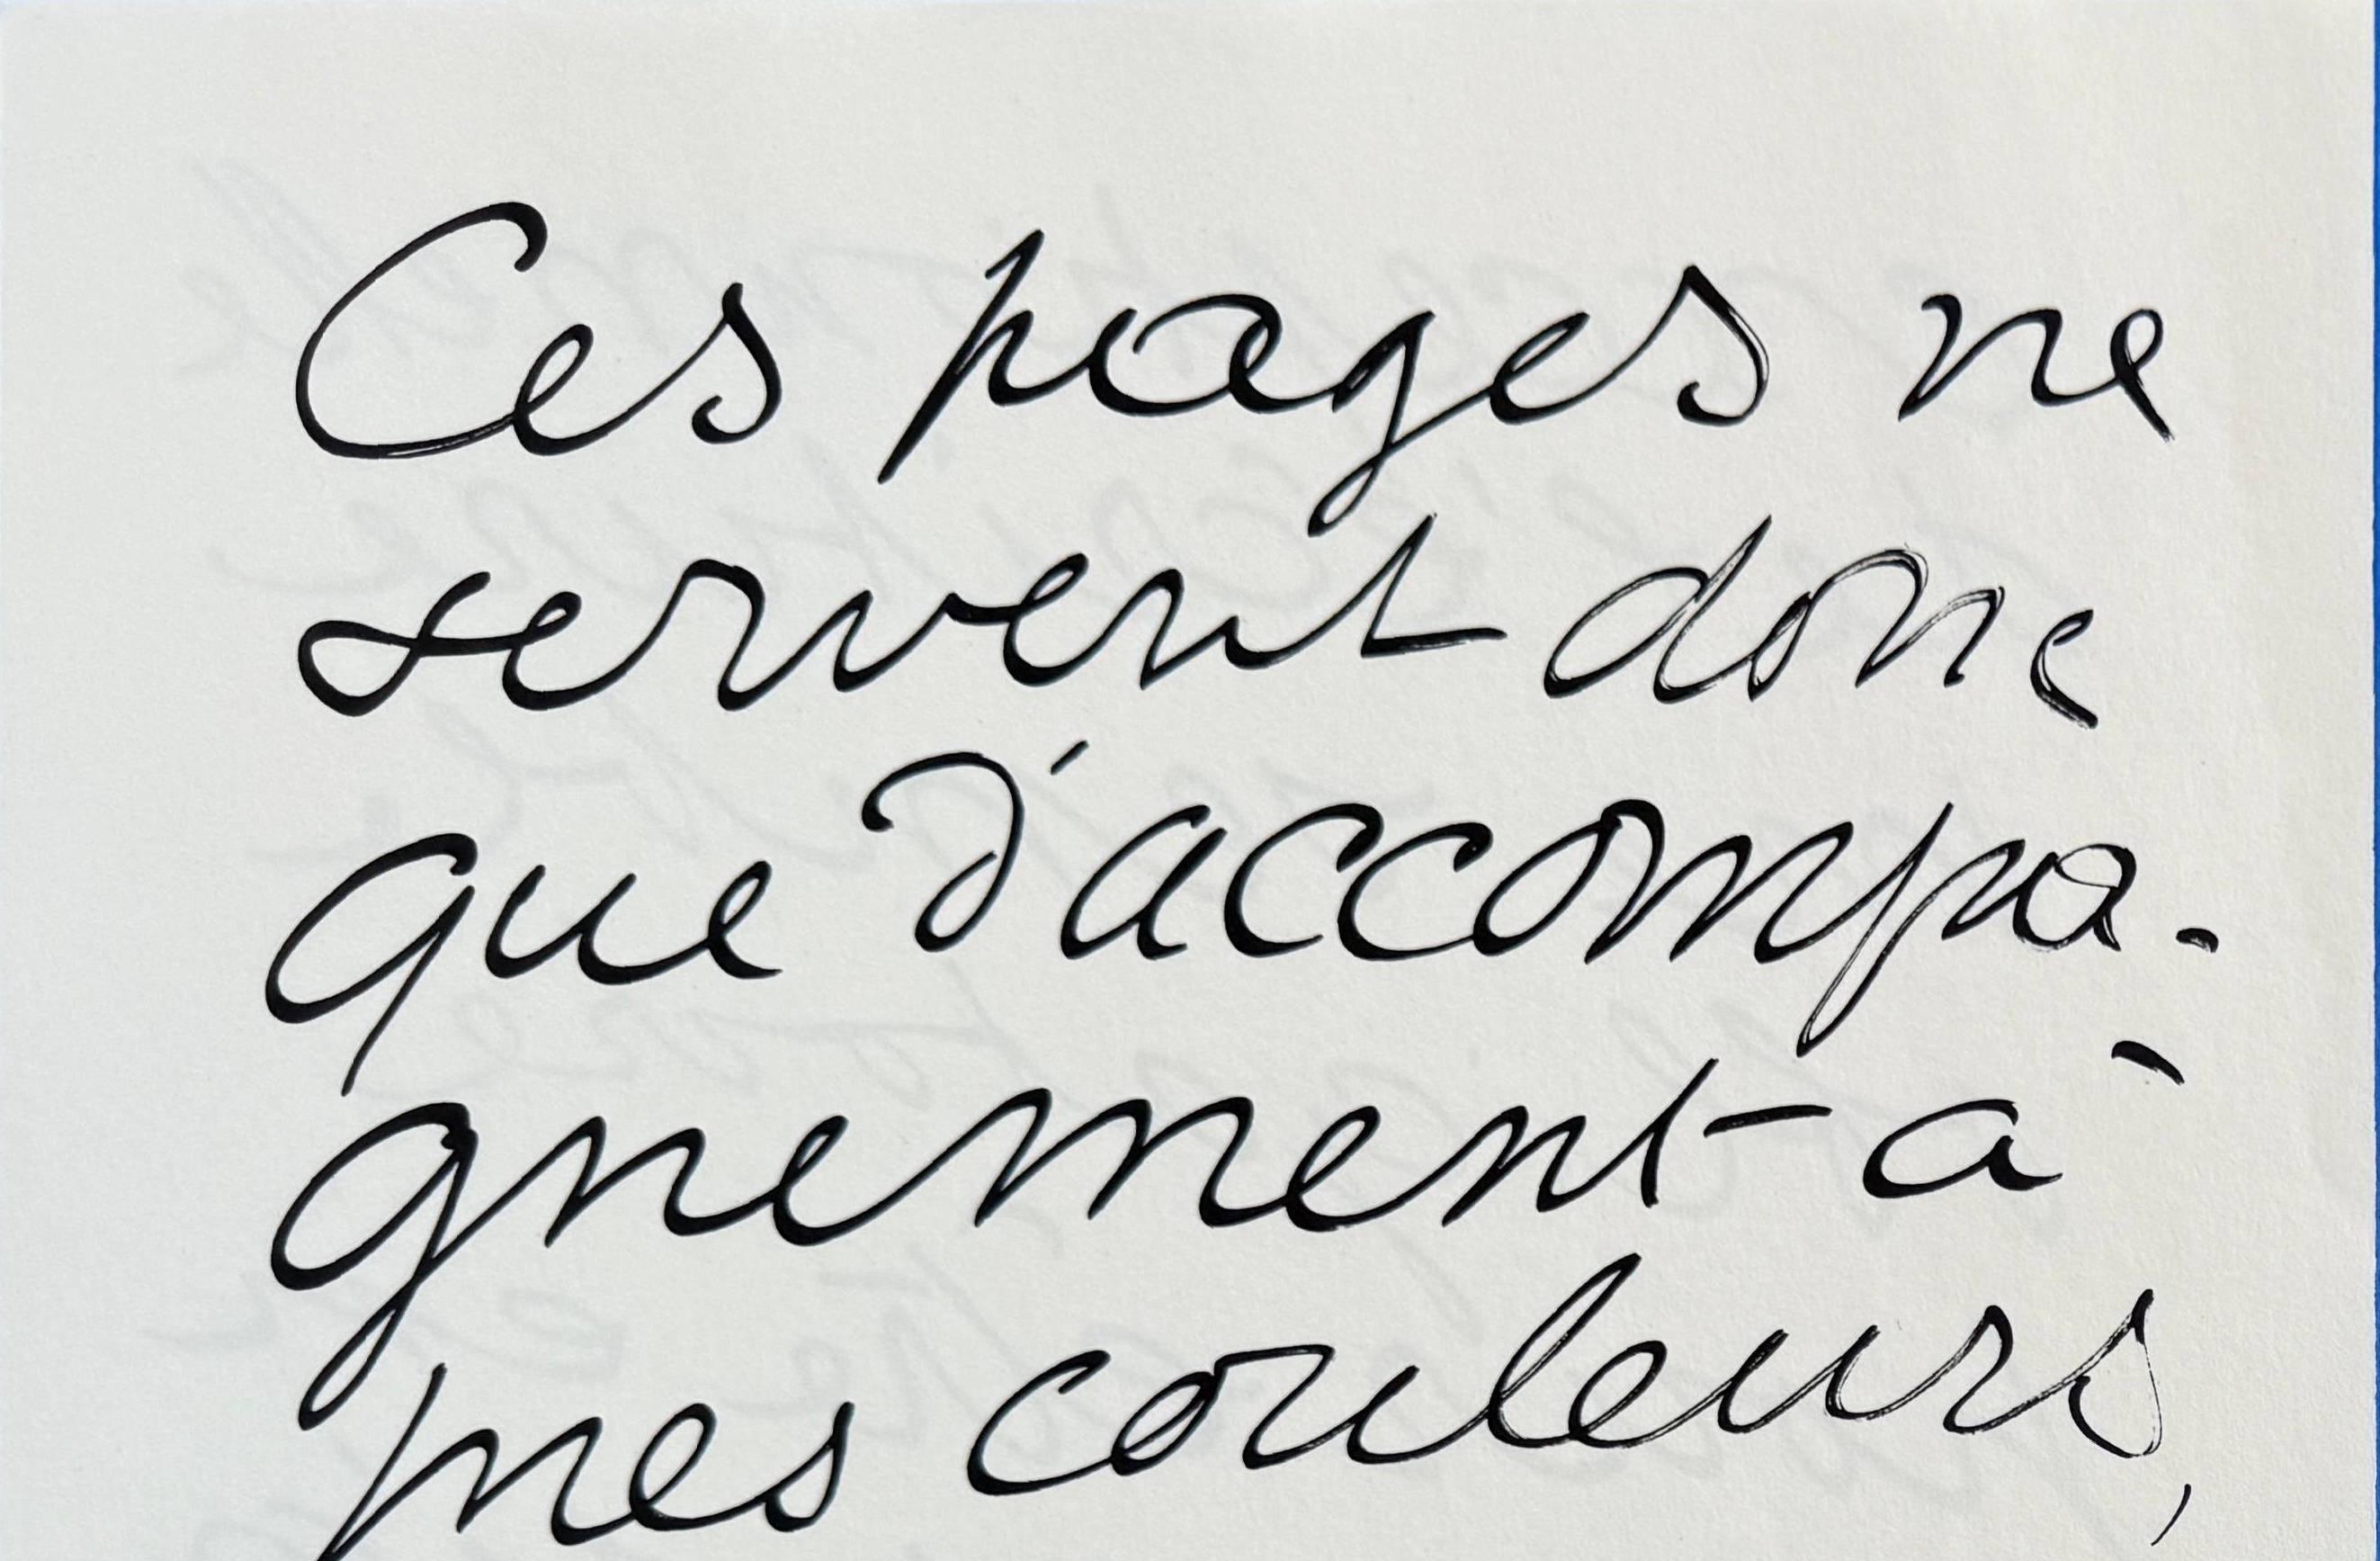 Ces pages ne
servent donc
que d'accompa-
gnement à
mes couleurs,